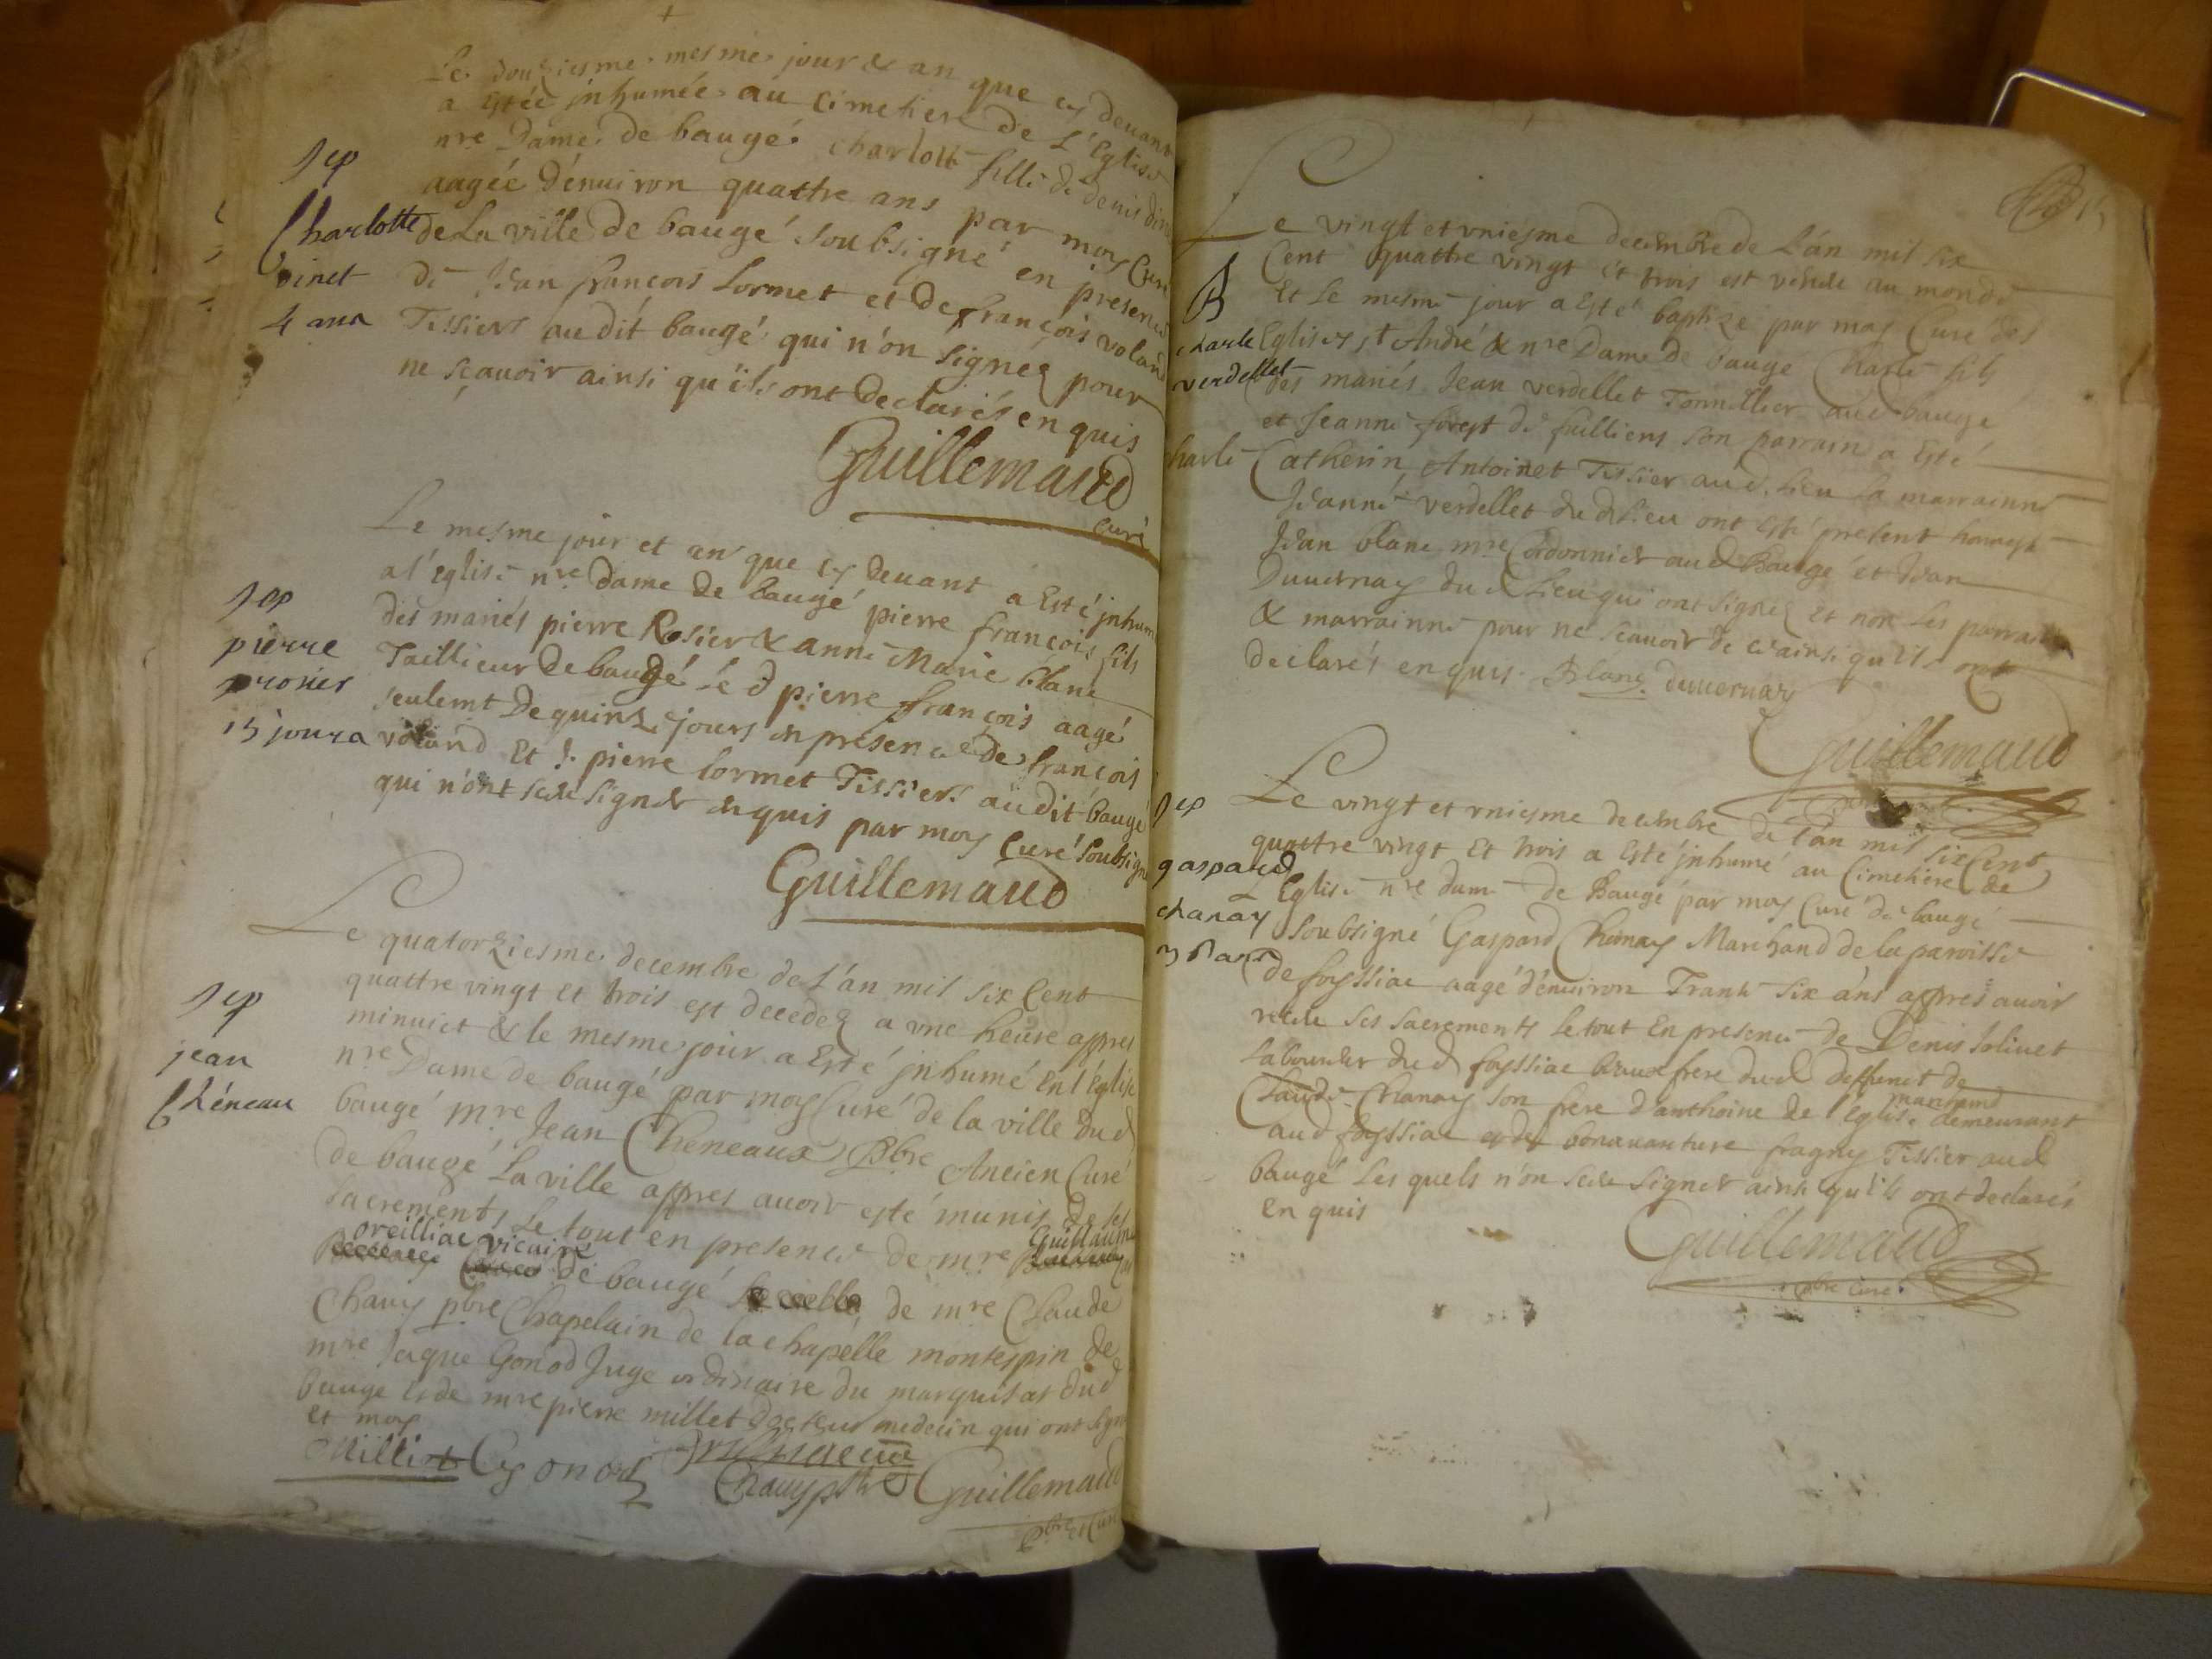 Le douziesme mesme jour & an que cy devant
a estée inhumée au cimetiere de L'Eglise
nre Dame de baugé charlotte fille de denis
aagéé d'enuiron quattre ans par moy Curé
de La ville de baugé soubsigné en presence
de Jean françois Cormet et de françois voland
Tissiers audit baugé qui n'on signez pour
ne scauoir ainsi qu'ils ont declarés enquis
Guillemaud
curé
Sep
Charlotte
pinet
4 ans
Le mesme jour et an que cy deuant a Esté jnhum
a l'eglise nre dame de baugé pierre françois fils
des mariés pierre Rosier & anne Marie blanc
Taillieur de baugé le d pierre françois aagé
seulemt De quinze jours en presence de françois
voland Et J. pierre Cormet Tissiers audit baugé
qui n'ont sceu signer enquis par moy Curé soubsigné
Guillemaud
Sep
pierre
rosier
15 jours
Le quatorziesme decembre de L'an mil six Cent
quattre vingt et trois est decedez a vne heure appres
minuict & le mesme jour a Esté jnhumé En l'Eglise
nre Dame de baugé par moy Curé de la ville dud
baugé mre Jean Cheneaux Pbre Ancien Curé
de baugé La ville appres auoir esté munis de ses
sacrements Le tout en presence de mre Guillaume
oreilliac vicaire de baugé de mre Claude
Chauy pbre Chapelain de la chapelle montespin de
mre Jaque Gonod Juge ordinaire du marquisat dud
bauge Et de mre pierre millet docteur medecin qui ont signé
et moy
Millet Gonod
Chauy pbre Guillemaud
Pbre et Curé
Sep
jean
Chéneau
Le vingt et vniesme decembre de L'an mil six
Cent quattre vingt et trois est venue au monde
Et Le mesme jour a Esté baptizé par moy Curé des
Eglises st André & nre Dame de baugé Charle fils
des mariés Jean verdellet Tonnellier aud bauge
et Jeanne forest de fulliens son parrain a Esté
Catherin Antoinet Tissier aud. Lieu La marrainne
Jeanne verdellet dud Lieu ont esté present honneste
Jean blanc mre Cordonnier aud Baugé et Jean
Duuernay dud Lieu qui ont signez et non Les parrain
& marrainne pour ne scauoir de ce ainsi qu'ils ont
declarés enquis. Blanc duuernay
Guillemaud
B
charle
verdellet
charle
Le vingt et vniesme decembre de l'an mil six Cent
quattre vingt Et trois a Esté jnhumé au Cimetiere de
L'Eglise nre dame de Baugé par moy Curé de baugé
soubsigné Gaspard Chanay Marchand de la paroisse
de foyssiac aagé d'enuiron Trante six ans appres auoir
receu ses sacrements Le tout En presence de Denis Joliuet
Laboureur dud foyssiac beaux frere dud deffunct de
Claude Chanay son frere d'anthoine de l'Eglise marchand demeurant
aud foyssiac et de bonauanture fragny Tissier aud
baugé Les quels n'on sceu signer ainsi qu'ils ont declarés
En quis
Guillemaud
pbre Curé
Sep
gaspard
chanay
36 ans